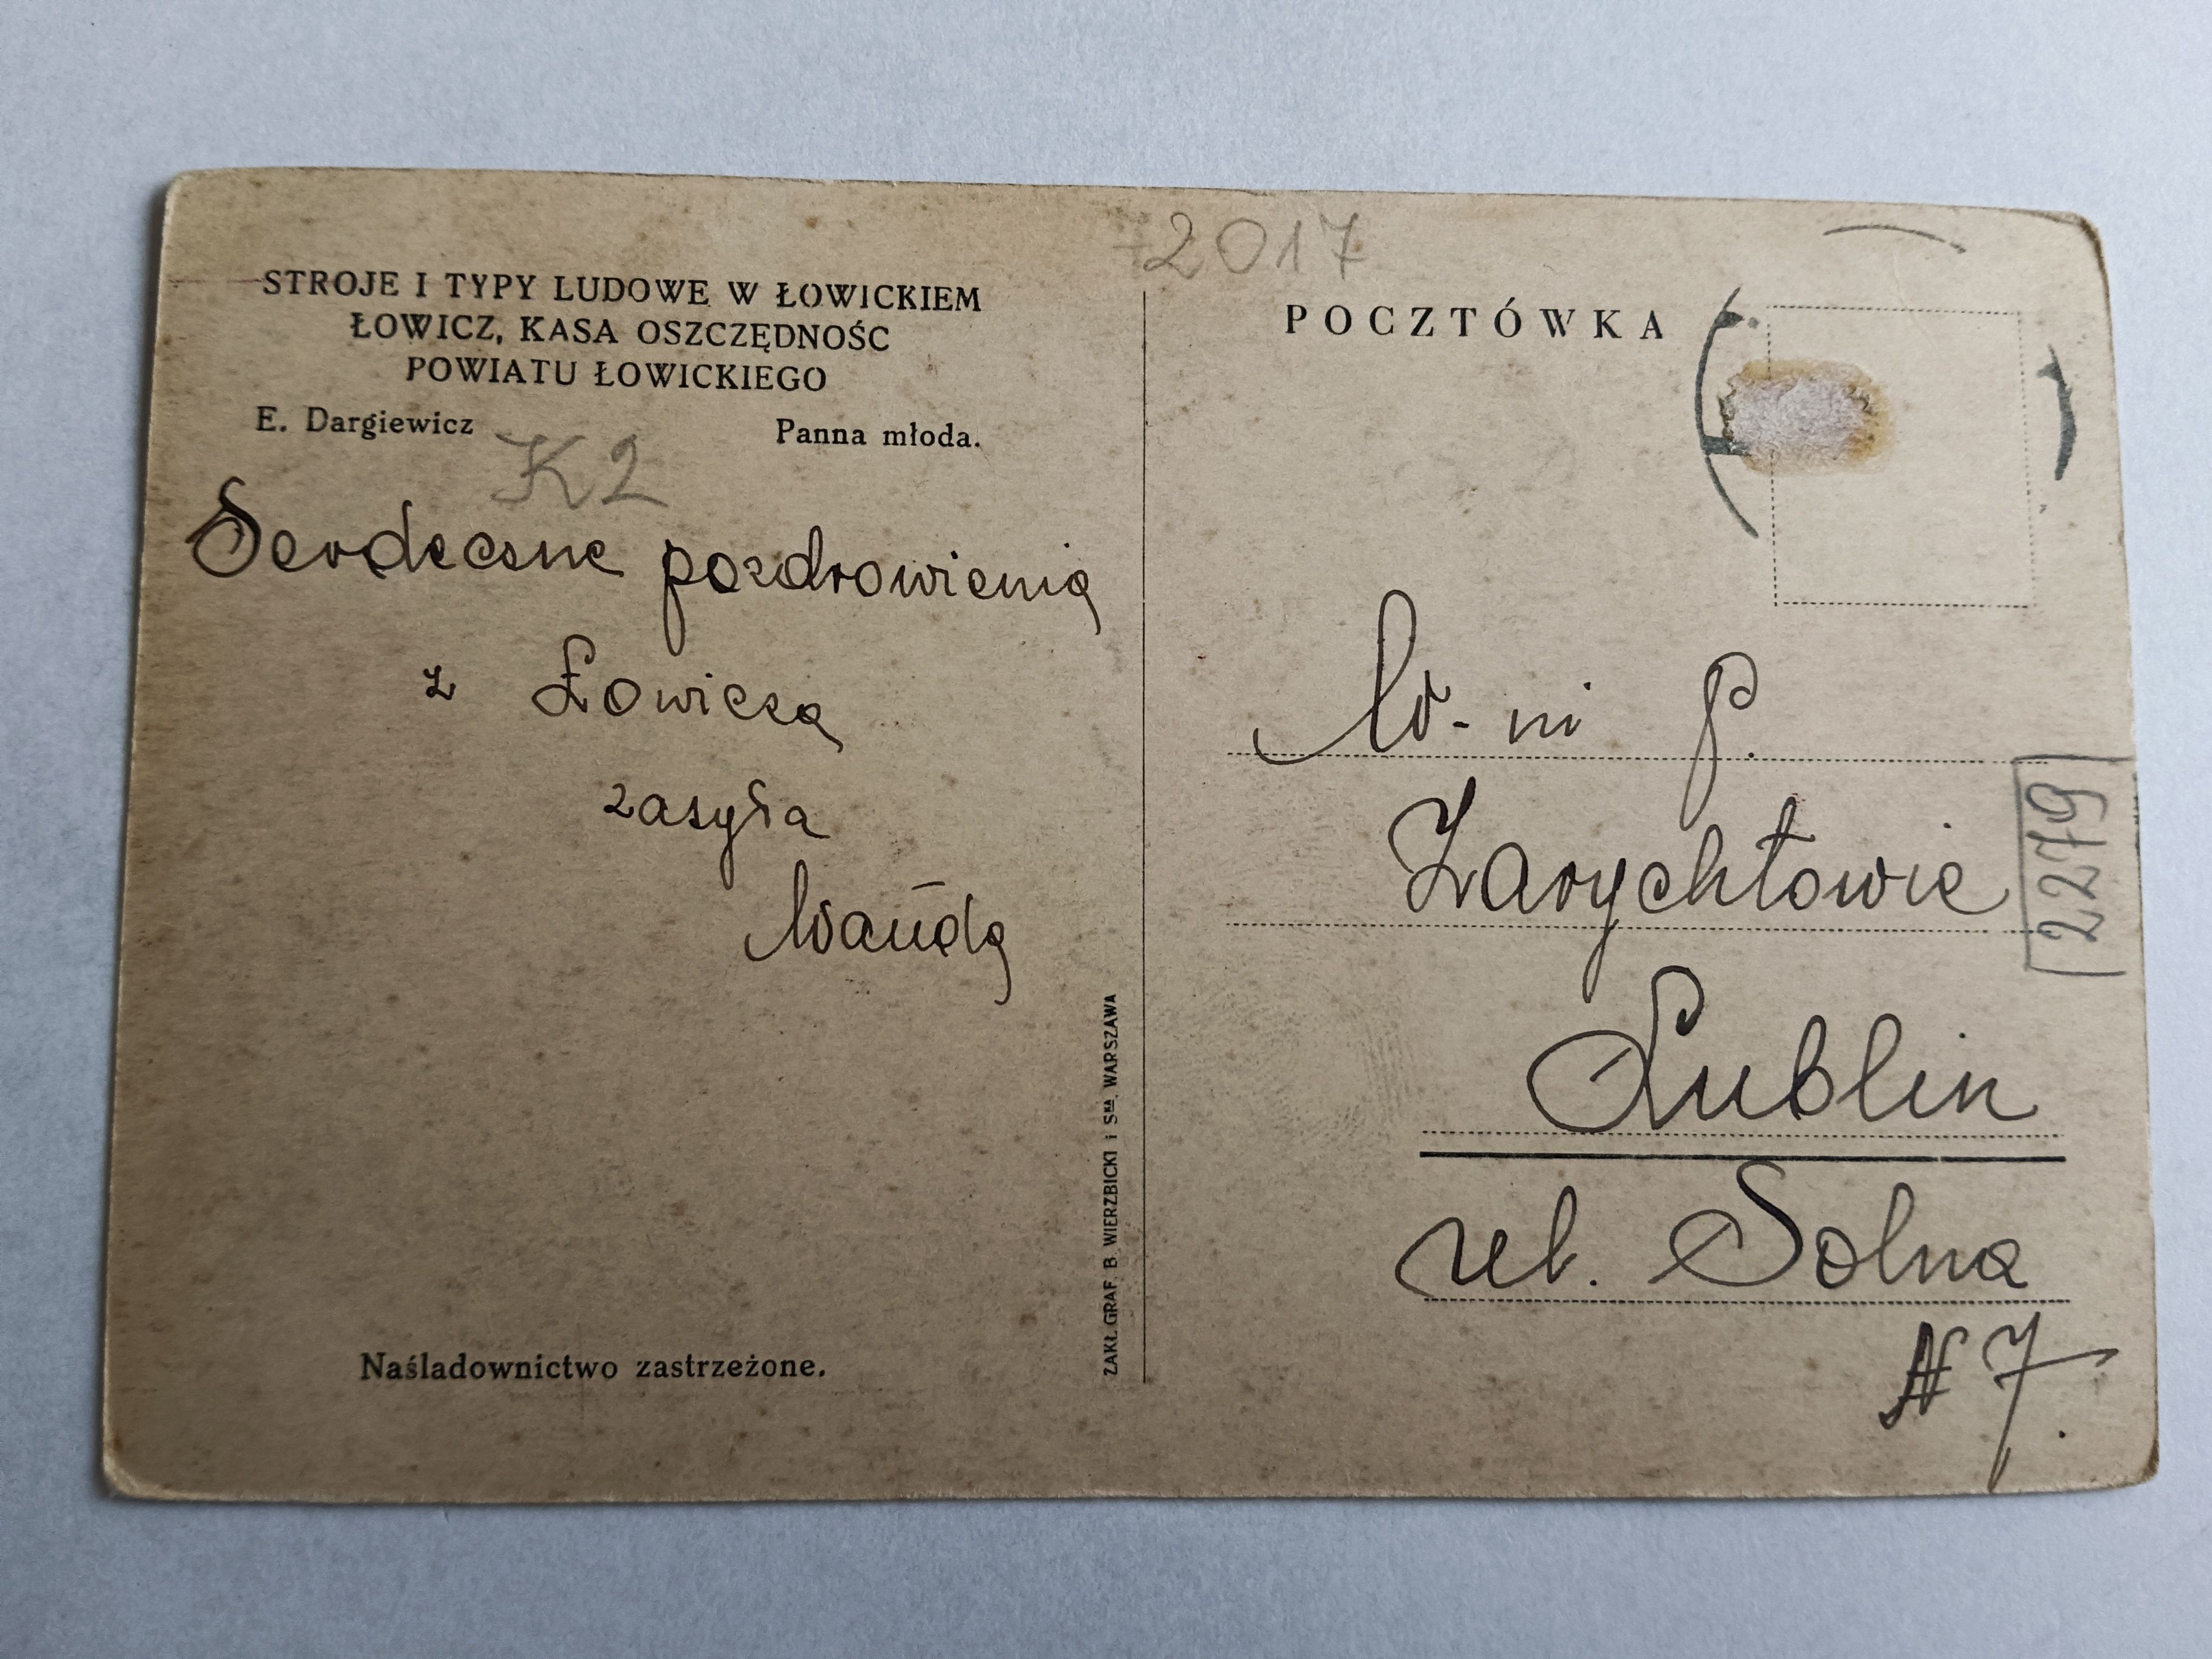 STROJE I TYPY LUDOWE W ŁOWICKIEM
ŁOWICZ, KASA OSZCZĘDNOŚC
POWIATU ŁOWICKIEGO
E. Dargiewicz Panna młoda.
K2
Serdeczne pozdrowienia
z Łowicza
zasyła
Wanda
Naśladownictwo zastrzeżone.
ZAKŁ. GRAF. B. WIERZBICKI i SKA, WARSZAWA
2017
POCZTÓWKA
W-ni P.
Zarychtowie
Lublin
ul. Solna
N 7.
2279